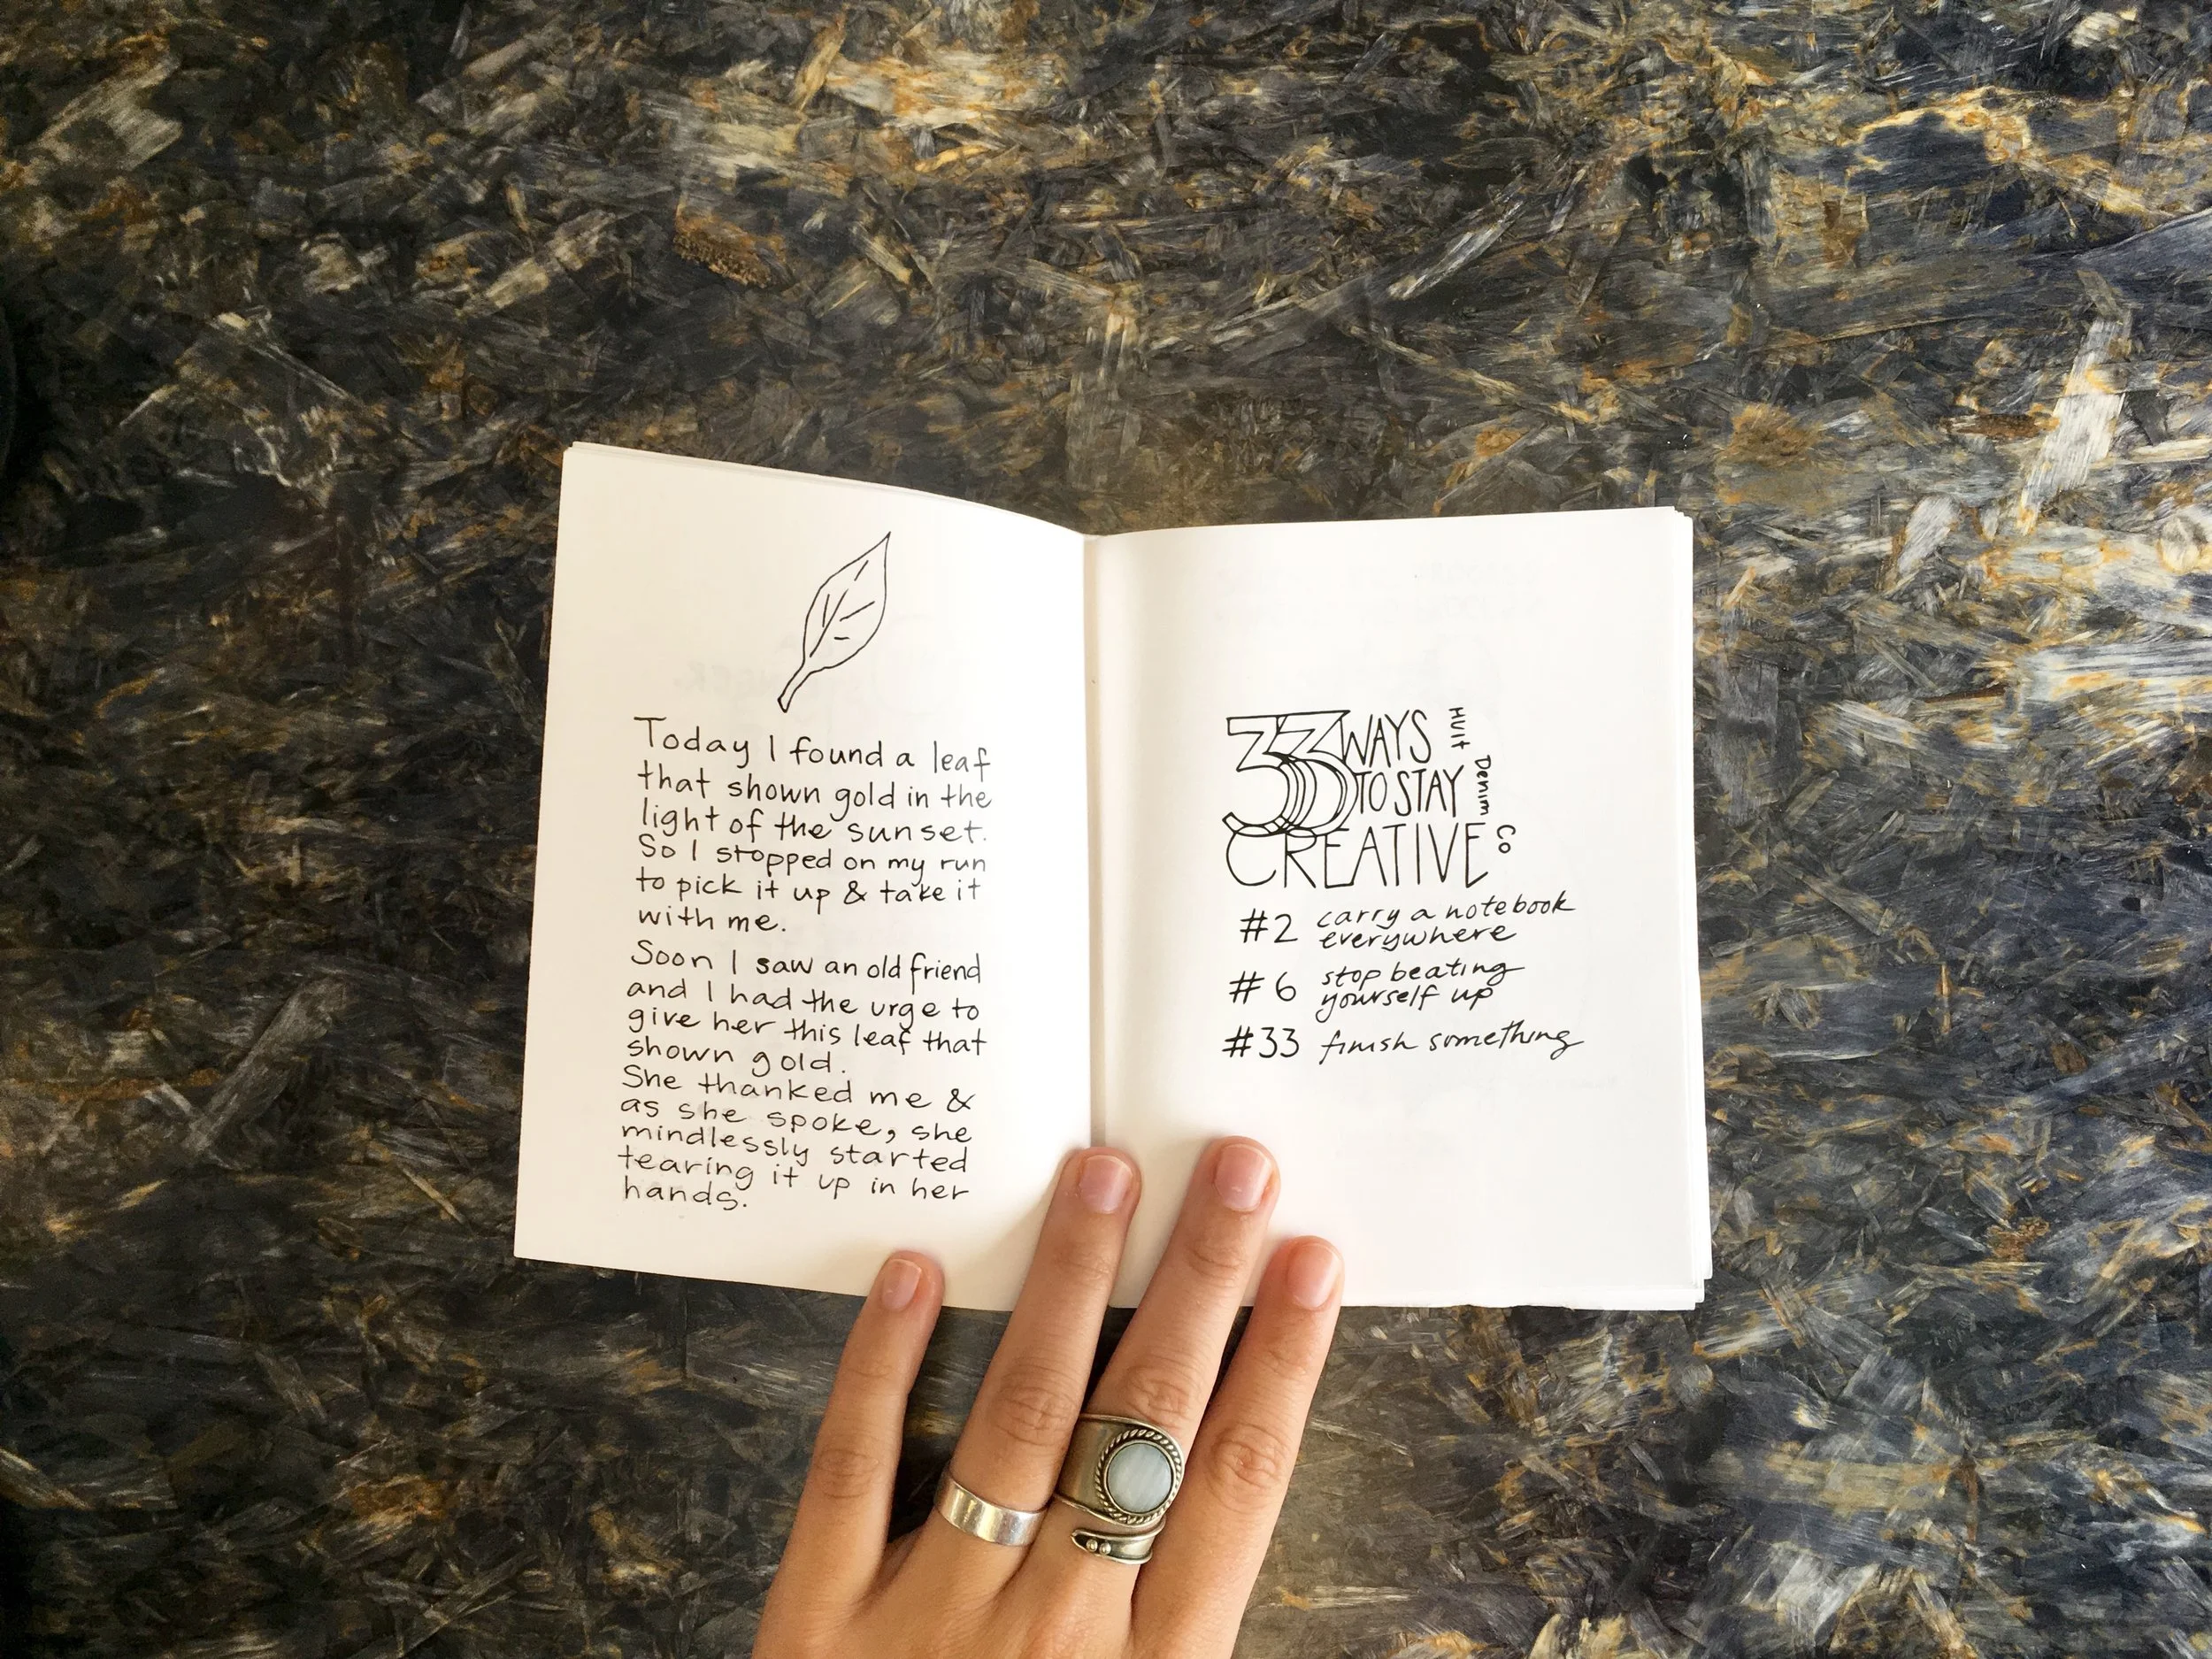 Today I found a leaf
that shown gold in the
light of the sunset.
So I stopped on my run
to pick it up & take it
with me.
Soon I saw an old friend
and I had the urge to
give her this leaf that
shown gold.
She thanked me &
as she spoke, she
mindlessly started
tearing it up in her
hands.
33 WAYS
TO STAY
CREATIVE
HUIT Denim Co
#2 carry a notebook
everywhere
#6 stop beating
yourself up
#33 finish something